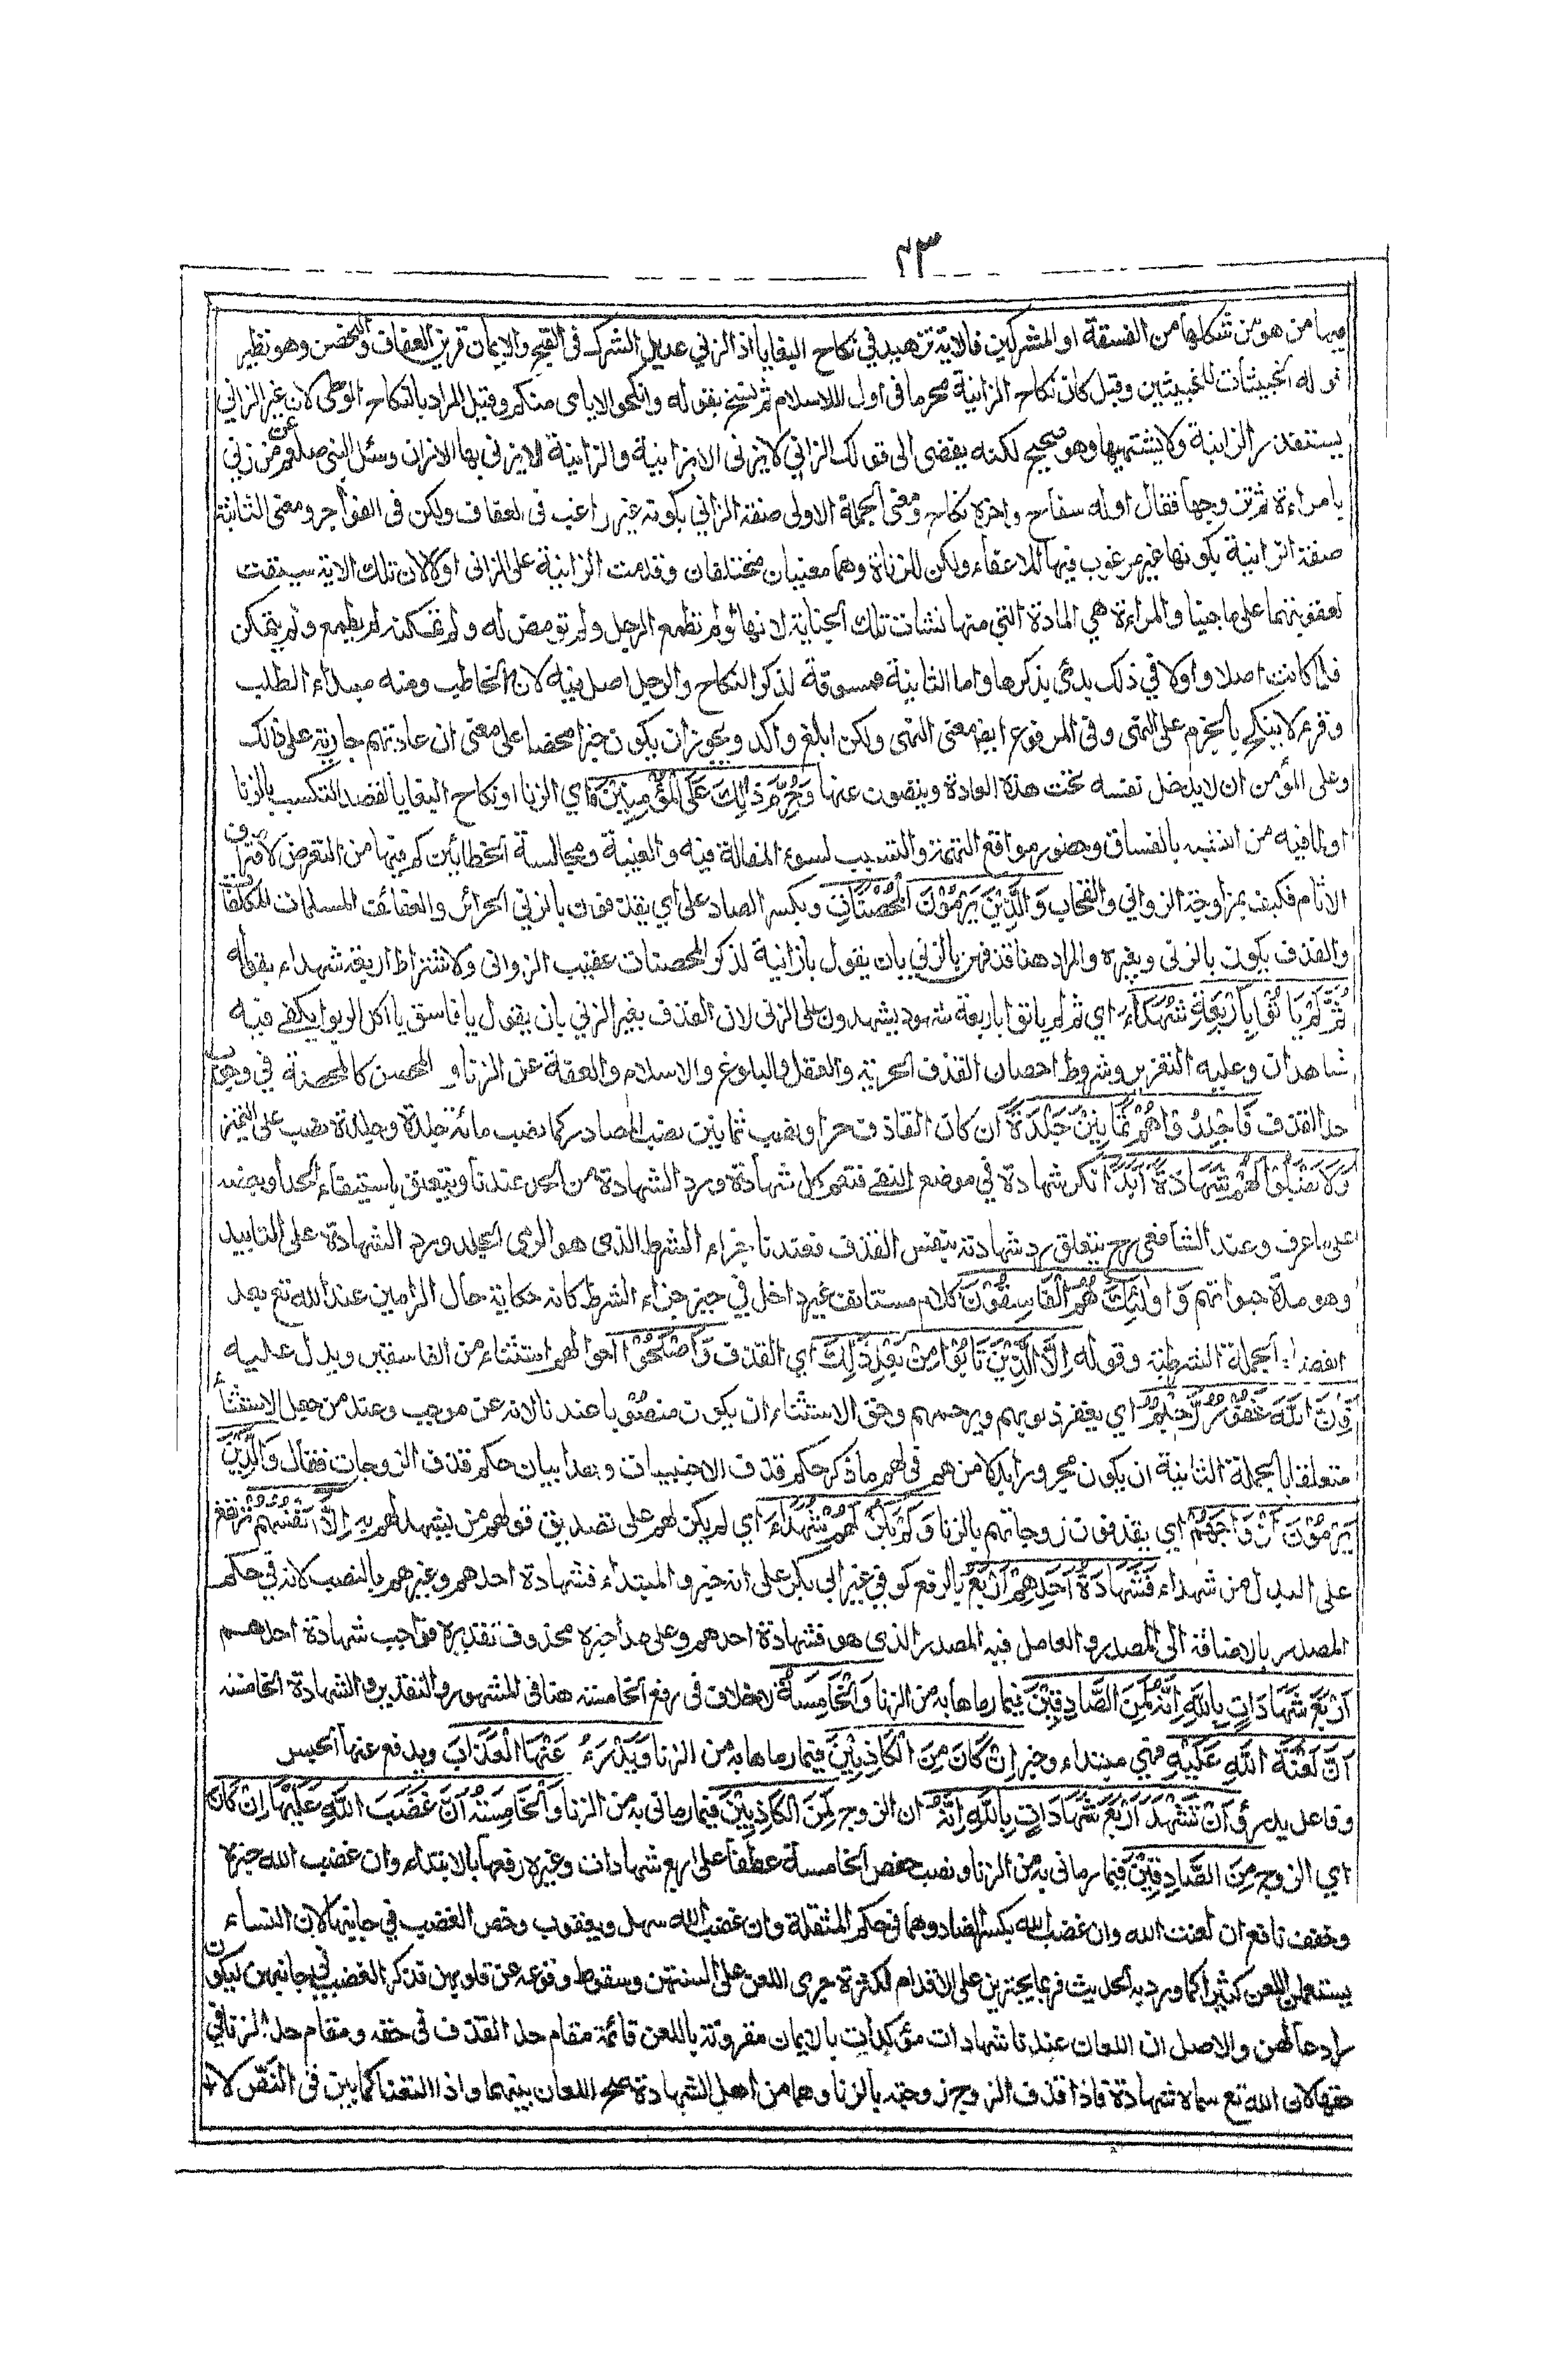 ٢٣
فيها من هو من شكلها من الفسقة او المشركين فالاية تزهيد في نكاح البغايا اذ الزني عديل الشرك في القبح والايمان قرين العفاف والتحصن وهو نظير
قوله الخبيثات للخبيثين وقيل كان نكاح الزانية محرما في اول الاسلام ثم نسخ بقوله وانكحوا الايامى منكم وقيل المراد بالنكاح الوطى لان غير الزاني
يستقذر الزانية ولا يشتهيها وهو صحيح لكنه يفضى الى قولك الزاني لا يزنى الا بزانية والزانية لا يزني بها الا زان وسئل النبي صلعم عن من زني
بامراءة ثم تزوجها فقال اوله سفاح واخره نكاح ومعنى الجملة الاولى صفة الزاني بكونه غير راغب فى العفاف ولكن فى الفواجر ومعنى الثانية
صفة الزانية بكونها غير مرغوب فيها للاعفاء ولكن للزناة وهما معنيان مختلفان وقدمت الزانية على الزانى اولا لان تلك الاية سيقت
لعقوبتهما على ما جنيا والمراءة هي المادة التي منها نشات تلك الجناية لانها لو لم تطمع الرجل ولم تومض له ولم تمكنه لم يطمع ولم يتمكن
فلما كانت اصلا واولا في ذلك بدئ بذكرها واما الثانية فمسوقة لذكر النكاح والرجل اصل فيه لانه الخاطب ومنه مبداء الطلب
وقرئ لا ينكح بالجزم على النهى وفى المرفوع ايضا معنى النهى ولكن ابلغ واكد ويجوز ان يكون خبرا محضا على معنى ان عادتهم جارية على ذالك
وعلى المؤمن ان لا يدخل نفسه تحت هذه العادة ويتصون عنها وَحُرِّمَ ذٰلِكَ عَلَى الْمُؤْمِنِيْنَ اي الزنا او نكاح البغايا لقصد التكسب بالزنا
او لما فيه من التشبه بالفساق وحضور مواقع التهمة والتسبب لسوء المقالة فيه والغيبة ومجالسة الخطائين كم فيها من التعرض لاقتراف
الاثام فكيف بمزاوجة الزواني والقحاب وَالَّذِيْنَ يَرْمُوْنَ الْمُحْصَنَاتِ وبكسر الصاد على اي يقذفون بالزني الحرائر والعفائف المسلمات المكلفات
والقذف يكون بالزنى وبغيره والمراد هنا قذفهن بالزني بان يقول يا زانية لذكر المحصنات عقيب الزوانى ولاشتراط اربعة شهداء بقوله
ثُمَّ لَمْ يَاْتُوْا بِاَرْبَعَةِ شُهَدَاءَ اي ثم لم ياتوا باربعة شهود يشهدون على الزنى لان القذف بغير الزني بان يقول يا فاسق يا اكل الربوا يكفى فيه
شاهدان وعليه التعزير وشروط احصان القذف الحرية والعقل والبلوغ والاسلام والعفة عن الزنا والمحصن كالمحصنة في وجوب
حد القذف فَاجْلِدُوْاهُمْ ثَمَانِيْنَ جَلْدَةً ان كان القاذف حرا ونصب ثمانين نصب المصادر كما نصب مائة جلدة وجلدة نصب على التمييز
وَلَا تَقْبَلُوْا لَهُمْ شَهَادَةً اَبَدًا نكر شهادة في موضع النفى فتعم كل شهادة ورد الشهادة من الحد عندنا ويتعلق باستيفاء الحد او بعضه
على ما عرف وعند الشافعى رح يتعلق رد شهادته بنفس القذف فعندنا جزاء الشرط الذى هو الرمى الجلد ورد الشهادة على التابيد
وهو مدة حيواتهم وَاولٰئِكَ هُمُ الْفَاسِقُوْنَ كلام مستانف غير داخل في حيز جزاء الشرط كانه حكاية حال الرامين عند الله تع بعد
انقضاء الجملة الشرطية وقوله اِلَّا الَّذِيْنَ تَابُوْا مِنْ بَعْدِ ذٰلِكَ اي القذف وَاَصْلَحُوْا احوالهم استثناء من الفاسقين ويدل عليه
فَاِنَّ اللّٰهَ غَفُوْرٌ رَّحِيْمٌ اي يغفر ذنوبهم ويرحمهم وحق الاستثناء ان يكون منصوبا عندنا لانه عن موجب وعند من جعل الاستثناء
متعلقا بالجملة الثانية ان يكون مجرورا بدلا من هم فى لهم ما ذكر حكم قذف الاجنبيات وبعد ابيان حكم قذف الزوجات فقال وَالَّذِيْنَ
يَرْمُوْنَ اَزْوَاجَهُمْ اي يقذفون زوجاتهم بالزنا وَلَمْ يَكُنْ لَّهُمْ شُهَدَاءُ اي لم يكن لهم على تصديق قولهم من يشهد لهم به اِلَّا اَنْفُسُهُمْ يرتفع
على البدل من شهداء فَشَهَادَةُ اَحَدِهِمْ اَرْبَعُ بالرفع كوفي غير ابي بكر على انه خبر والمبتداء فشهادة احدهم وغيرهم بالنصب لانه في حكم
المصدر بالاضافة الى المصدر والعامل فيه المصدر الذى هو فشهادة احدهم وعلى هذا خبره محذوف تقديره فواجب شهادة احدهم
اَرْبَعَ شَهَادَاتٍ بِاللّٰهِ اِنَّهٗ لَمِنَ الصَّادِقِيْنَ فيما رماها به من الزنا وَالْخَامِسَةُ لا خلاف فى رفع الخامسة هنا فى المشهور والتقدير والشهادة الخامسة
اَنَّ لَعْنَةَ اللّٰهِ عَلَيْهِ فهي مبتداء وخبر اِنْ كَانَ مِنَ الْكَاذِبِيْنَ فيما رماها به من الزنا وَيَدْرَءُ عَنْهَا الْعَذَابَ ويدفع عنها الحبس
وفاعل يدرؤ اَنْ تَشْهَدَ اَرْبَعَ شَهَادَاتٍ بِاللّٰهِ اِنَّهٗ ان الزوج لَمِنَ الْكَاذِبِيْنَ فيما رمانى به من الزنا وَالْخَامِسَةَ اَنَّ غَضَبَ اللّٰهِ عَلَيْهَا اِنْ كَانَ
اي الزوج مِنَ الصَّادِقِيْنَ فيما رمانى به من الزنا ونصب حفص الخامسة عطفا على اربع شهادات وغيره رفعها بالابتداء وان غضب الله خبره
وخفف نافع ان لعنت الله وان غضب الله بكسر الضاد وهما فى حكم المثقلة وان غضب الله سهل ويعقوب وخص الغضب في جانبها لان النساء
يستعملن اللعن كثيرا كما ورد به الحديث فربما يجترين على الاقدام لكثرة جرى اللعن على السنتهن وسقوط وقوعه عن قلوبهن فذكر الغضب في جانبهن ليكون
رادعا لهن والاصل ان اللعان عندنا شهادات مؤكدات بالايمان مقرونة باللعن قائمة مقام حد القذف فى حقه ومقام حد الزنا في
حقها لان الله تع سماه شهادة فاذا قذف الزوج زوجته بالزنا وهما من اهل الشهادة صح اللعان بينهما واذا التعنا كما بين فى النص لا